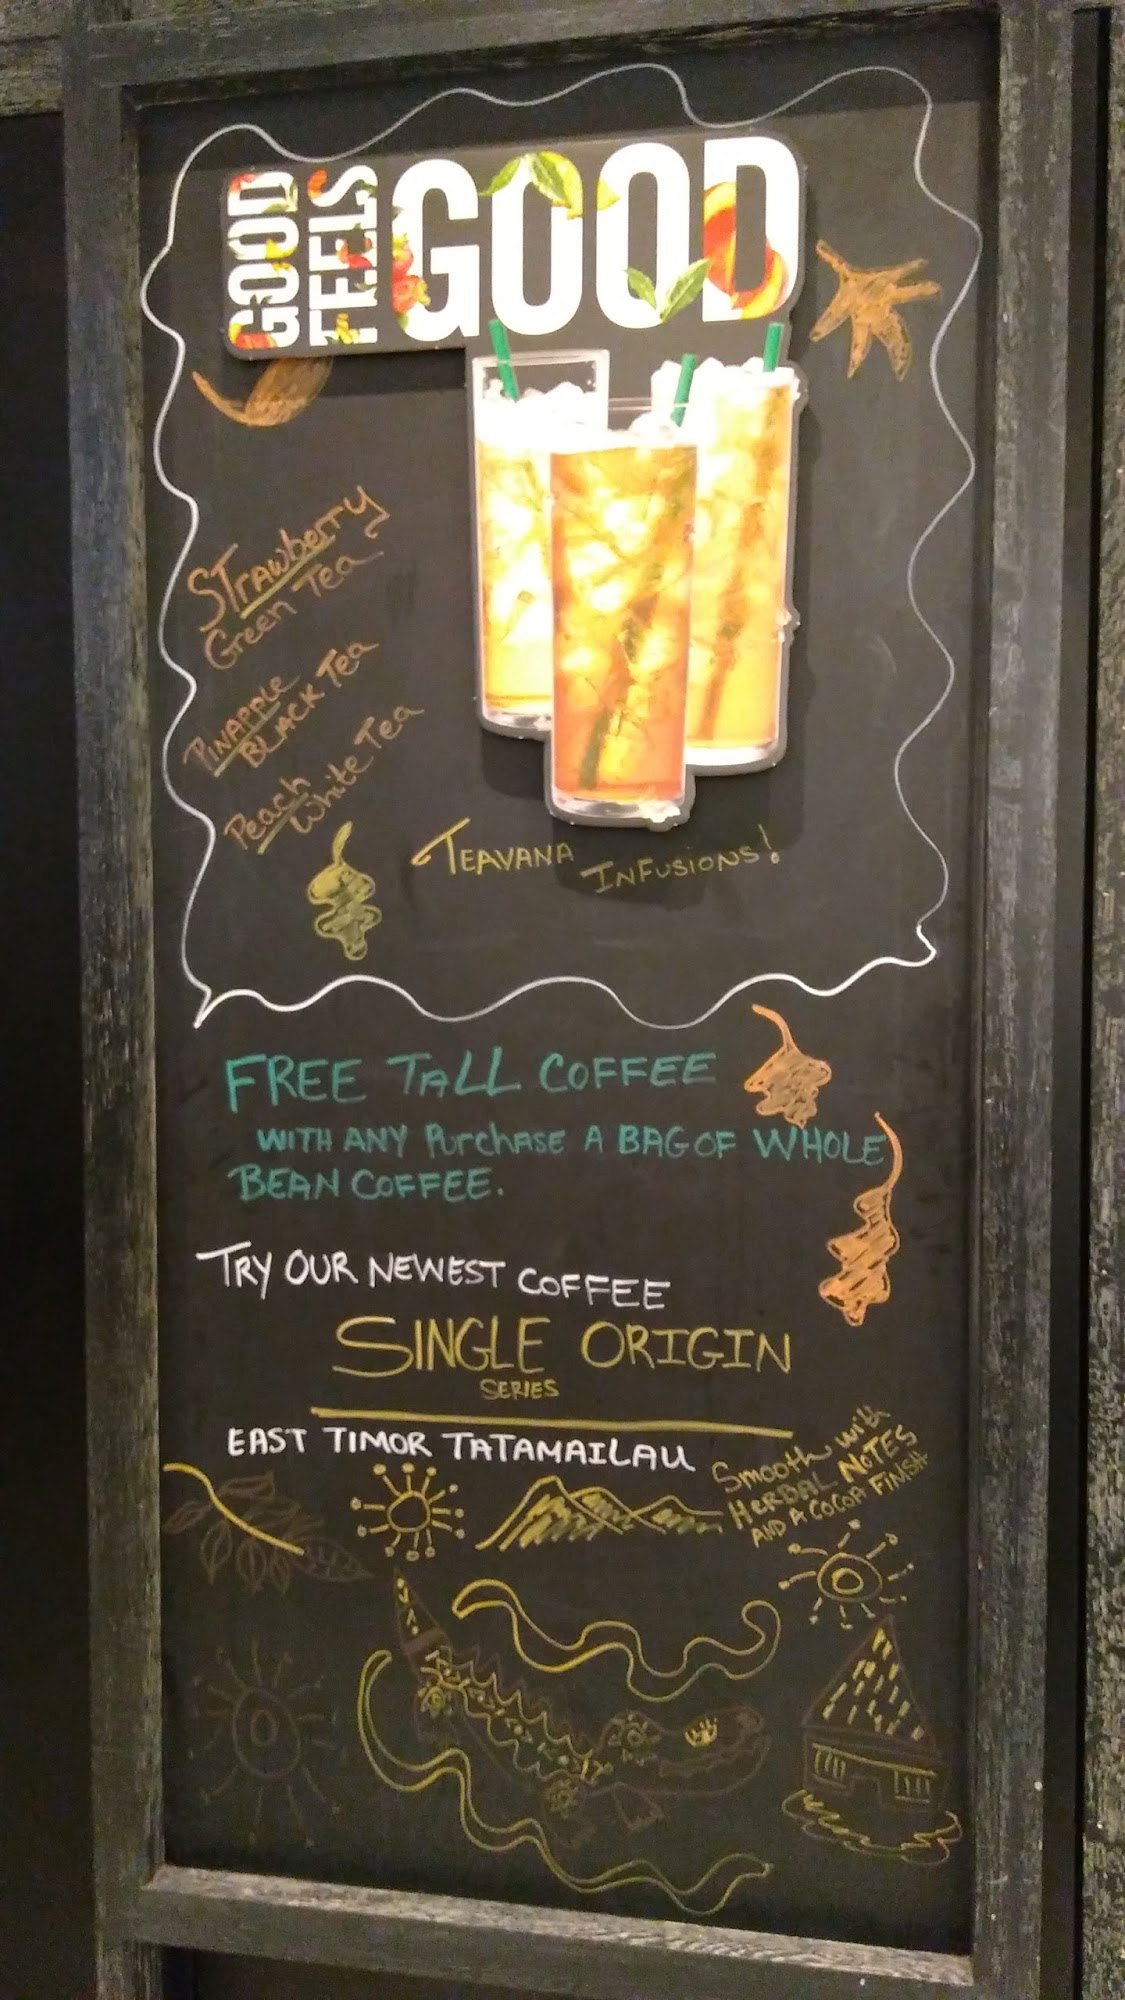 GOOD
FEELS
GOOD
STrawberry
Green Tea
PINAPPLE
BLACK TEA
Peach
White Tea
TEAVANA INFUSIONS!
FREE TALL COFFEE
WITH ANY PurCHASE A BAG OF WHOLE
BEAN COFFEE.
TRY OUR NEWEST COFFEE
SINGLE ORIGIN
SERIES
EAST TIMOR TATAMAILAU
Smooth with
HERBAL NOTES
AND A COCOA FINISH